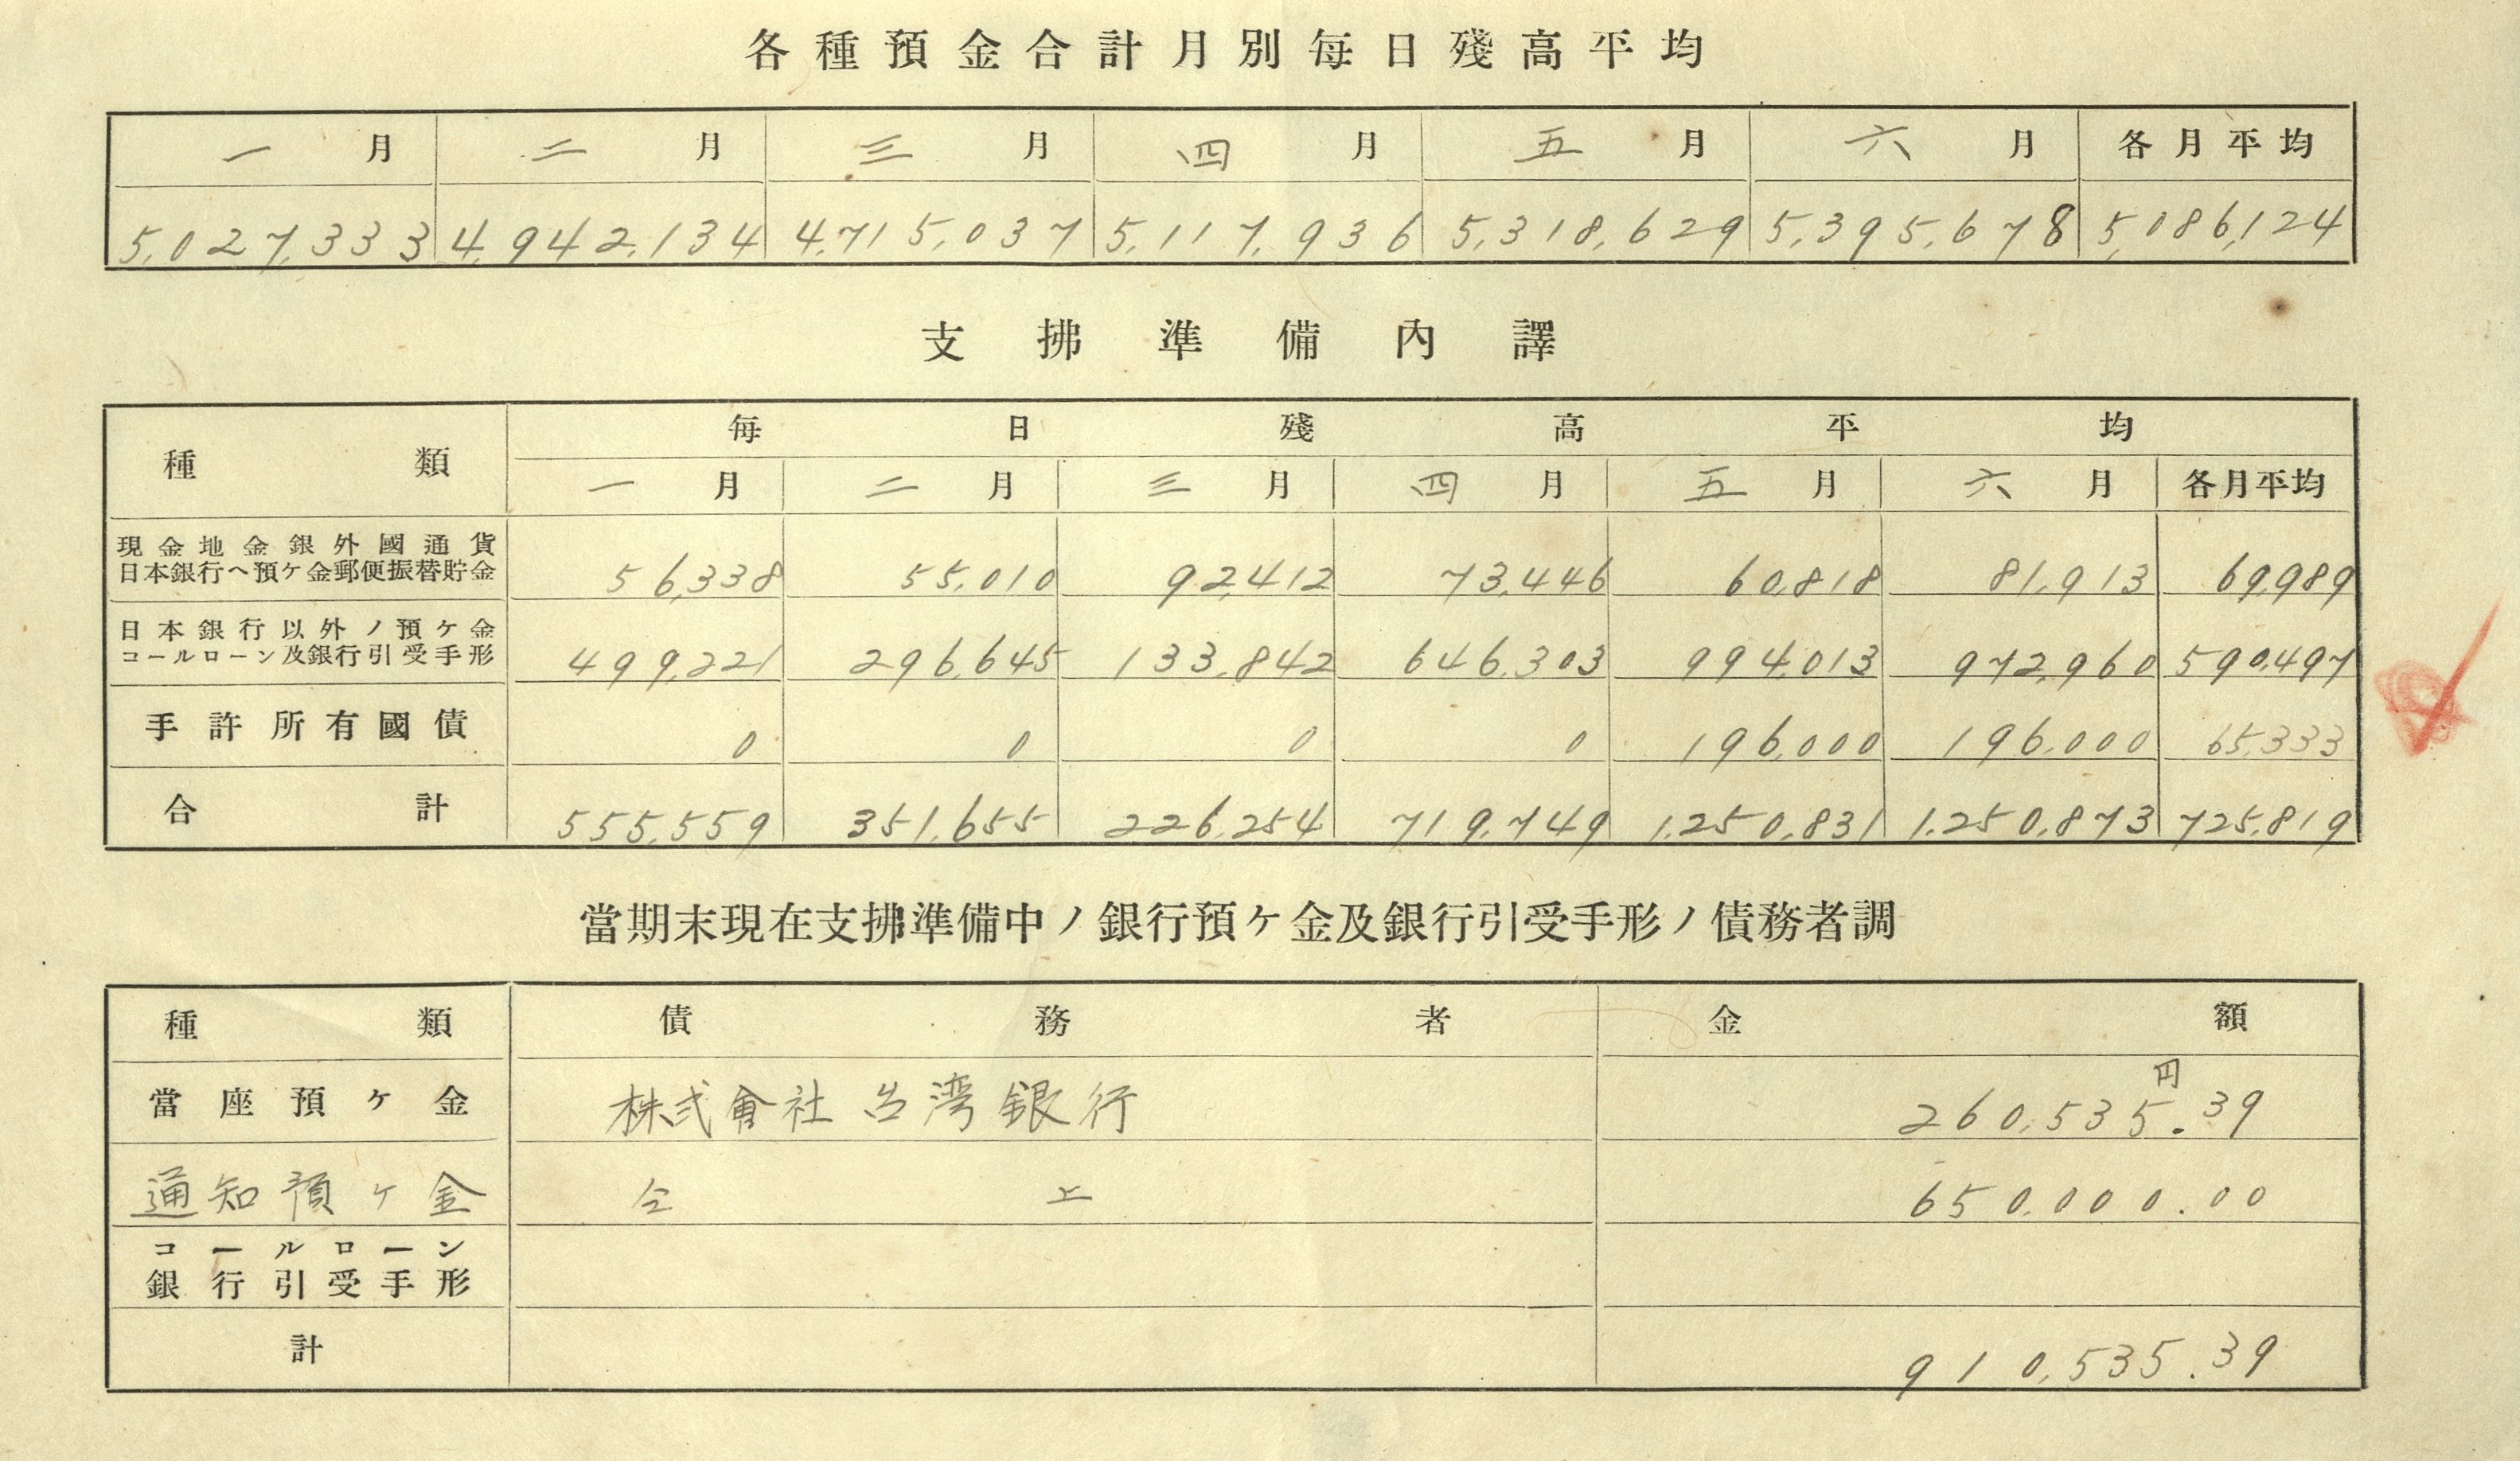 各種預金合計月別每日殘高平均
一月 二月 三月 四月 五月 六月 各月平均
5,027,333 4,942,134 4,715,037 5,117,936 5,318,629 5,395,678 5,086,124
支拂準備內譯
種類 每日殘高平均
一月 二月 三月 四月 五月 六月 各月平均
現金地金銀外國通貨
日本銀行ヘ預ケ金郵便振替貯金 56,338 55,010 92,412 73,446 60,818 81,913 69,989
日本銀行以外ノ預ケ金
コールローン及銀行引受手形 499,221 296,645 133,842 646,303 994,013 972,960 590,497
手許所有國債 0 0 0 0 196,000 196,000 65,333
合計 555,559 351,655 226,254 719,749 1,250,831 1,250,873 725,819
當期末現在支拂準備中ノ銀行預ケ金及銀行引受手形ノ債務者調
種類 債務者 金額
當座預ケ金 株式會社台湾銀行 260,535円.39
通知預ケ金 仝上 650,000.00
コールローン
銀行引受手形
計 910,535.39